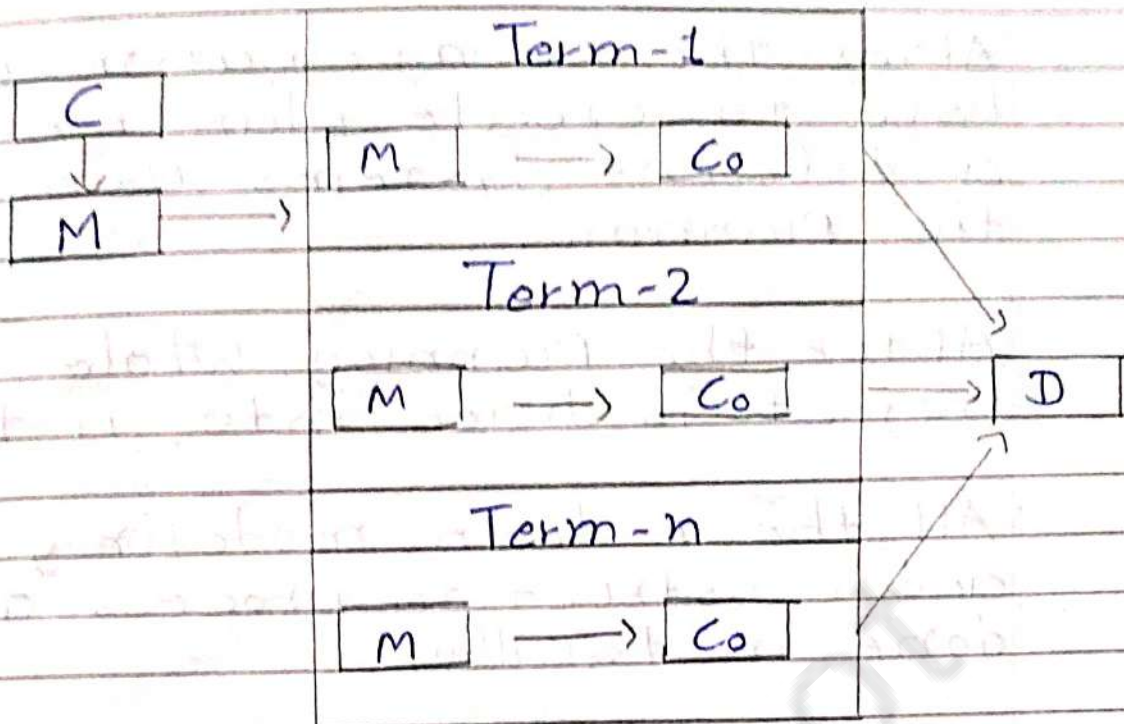 Term-1
C
M Co
M
Term-2
M Co D
Term-n
M Co